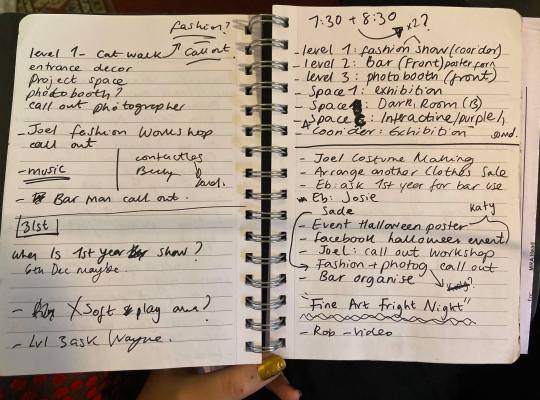 fashion?
level 1 - Cat walk Call out.
entrance decor
Project space
photobooth?
call out photographer
- Joel fashion workshop
call out
contacts
- music
Becky
- Bar man call out.
31st
when is 1st year show?
6th Dec maybe.
- X Soft play area?
- Lvl 3 ask Wayne.
7:30 + 8:30
x2?
- level 1: fashion show (coorider)
- level 2: Bar (front)
- level 3: photobooth (front)
- Space 1: exhibition
- Space : Dark Room (B)
- Space : Interactive/purple,
- Coorider: Exhibition
- Joel Costume Making
- Arrange another Clothes Sale
- Eb: ask 1st year for bar use
- Eb: Josie
Sade
Katy
- Event Halloween poster
- facebook halloween event
- Joel: call out workshop
- Fashion + photog call out
- Bar organise
"Fine Art Fright Night"
- Rob - video